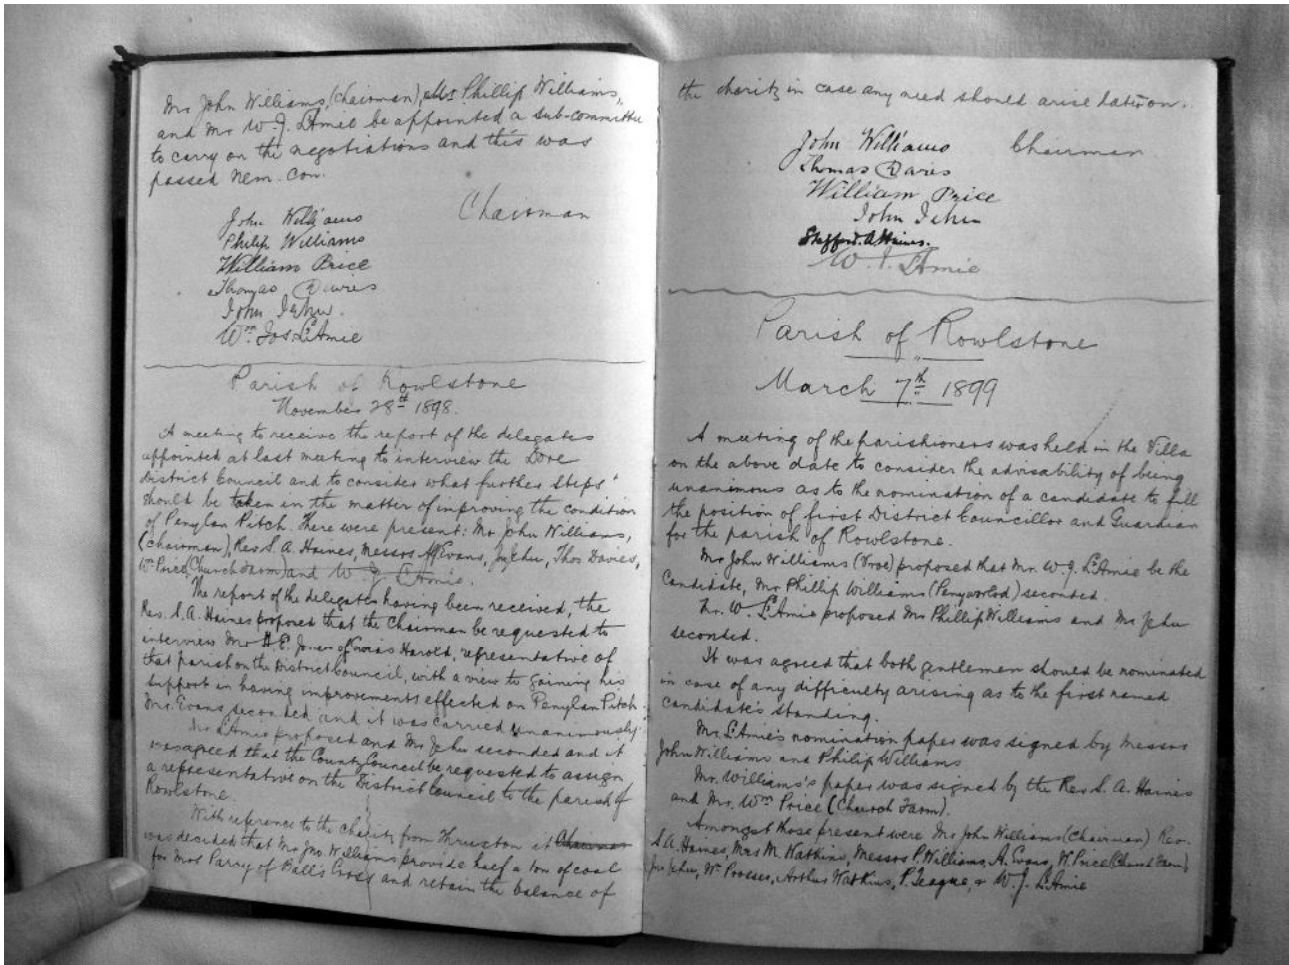 Mr John Williams, (Chairman), Mr Phillip Williams,
and Mr W. J. L'Amie be appointed a sub-committee
to carry on the negotiations and this was
passed Nem. Con.
John Williams Chairman
Philip Williams
William Price
Thomas Davies
John Jehu.
Wm Jos. L'Amie
Parish of Rowlstone
November 28th 1898.
A meeting to receive the report of the delegates
appointed at last meeting to interview the Dore
District Council and to consider what further steps
should be taken in the matter of improving the condition
of Penylan Pitch. There were present: Mr John Williams,
(Chairman), Rev. S. A. Haines, Messrs Evans, Jehu, Thos Davies,
Wm Price, (Church Farm) and W. J. L'Amie.
The report of the delegates having been received, the
Rev. S. A. Haines proposed that the Chairman be requested to
interview Mr H. E. Jones of Harold, representative of
that parish on the District Council, with a view to gaining his
support in having improvements effected on Penylan Pitch.
Mr. Evans seconded and it was carried unanimously.
Mr L'Amie proposed and Mr Jehu seconded and it
was agreed that the County Council be requested to assign
a representative on the District Council to the parish of
Rowlstone.
With reference to the charity from Thruxton it Chairman
was decided that Mr Jno. Williams provide half a ton of coal
for Mrs Parry of Ball's Cross and retain the balance of
the charity in case any need should arise later on.
John Williams Chairman
Thomas Davies
William Price
John Jehu
Stafford. A. Haines.
W. J. L'Amie
Parish of Rowlstone
March 7th 1899
A meeting of the parishioners was held in the Villa
on the above date to consider the advisability of being
unanimous as to the nomination of a candidate to fill
the position of first District Councillor and Guardian
for the parish of Rowlstone.
Mr John Williams (Vroe) proposed that Mr. W. J. L'Amie be the
candidate, Mr Phillip Williams (Penyworlod) seconded.
Mr. W. L'Amie proposed Mr Phillip Williams and Mr Jehu
seconded.
It was agreed that both gentlemen should be nominated
in case of any difficulty arising as to the first named
candidate's standing.
Mr. L'Amie's nomination paper was signed by Messrs
John Williams and Philip Williams
Mr. Williams's paper was signed by the Rev. S. A. Haines
and Mr. Wm Price (Church Farm).
Amongst those present were Mr John Williams (Chairman) Rev.
S. A. Haines, Mrs M. Watkins, Messrs P. Williams, A. Evans, W. Price (Church Farm)
Jno Jehu, Wm Prosser, Arthur Watkins, P. Teague, & W. J. L'Amie